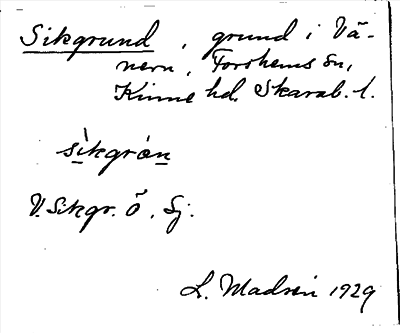 Sikgrund, grund i Vä-
nern, Forshems sn,
Kinne hd, Skarab. l.
sìkgrón
V. Sikgr. ö. Sj.
L. Madsén 1929